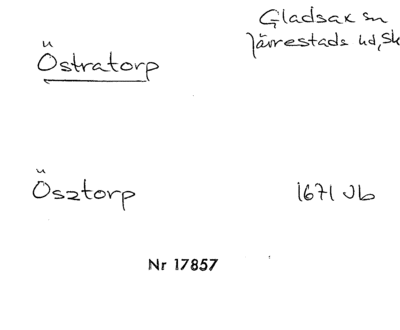 Gladsax sn
Järrestads hd, Sk
Östratorp
Ösztorp
1671 Jb
Nr 17857